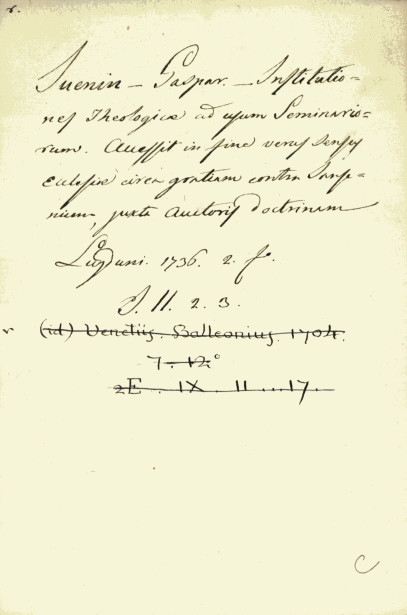 r.
Juenin – Gaspar. – Institutio=
nes Theologicæ ad usum Seminario=
rum. Accessit in fine verus sensus
Ecclesiæ circa gratiam contra Janse=
nium, juxta Auctoris doctrinam
Lugduni. 1736. 2. f.
J. 11. 2. 3.
v (id) Venetiis. Balleonius. 1704.
7. 12°
2E. IX 11 ... 17.
C